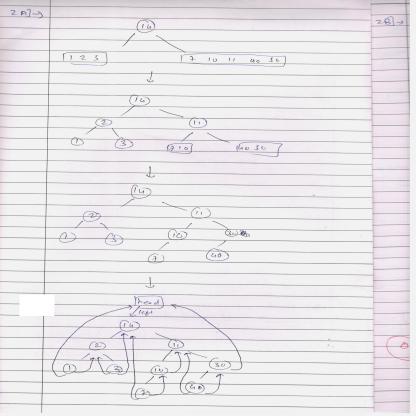 2A]→
2B]→
14
1 2 3
7 10 11 40 30
14
2 11
1 3 7 10 40 30
14
2 11
1 3 10 30
7 40
head
left
14
2 11
1 3 10 30
7 40